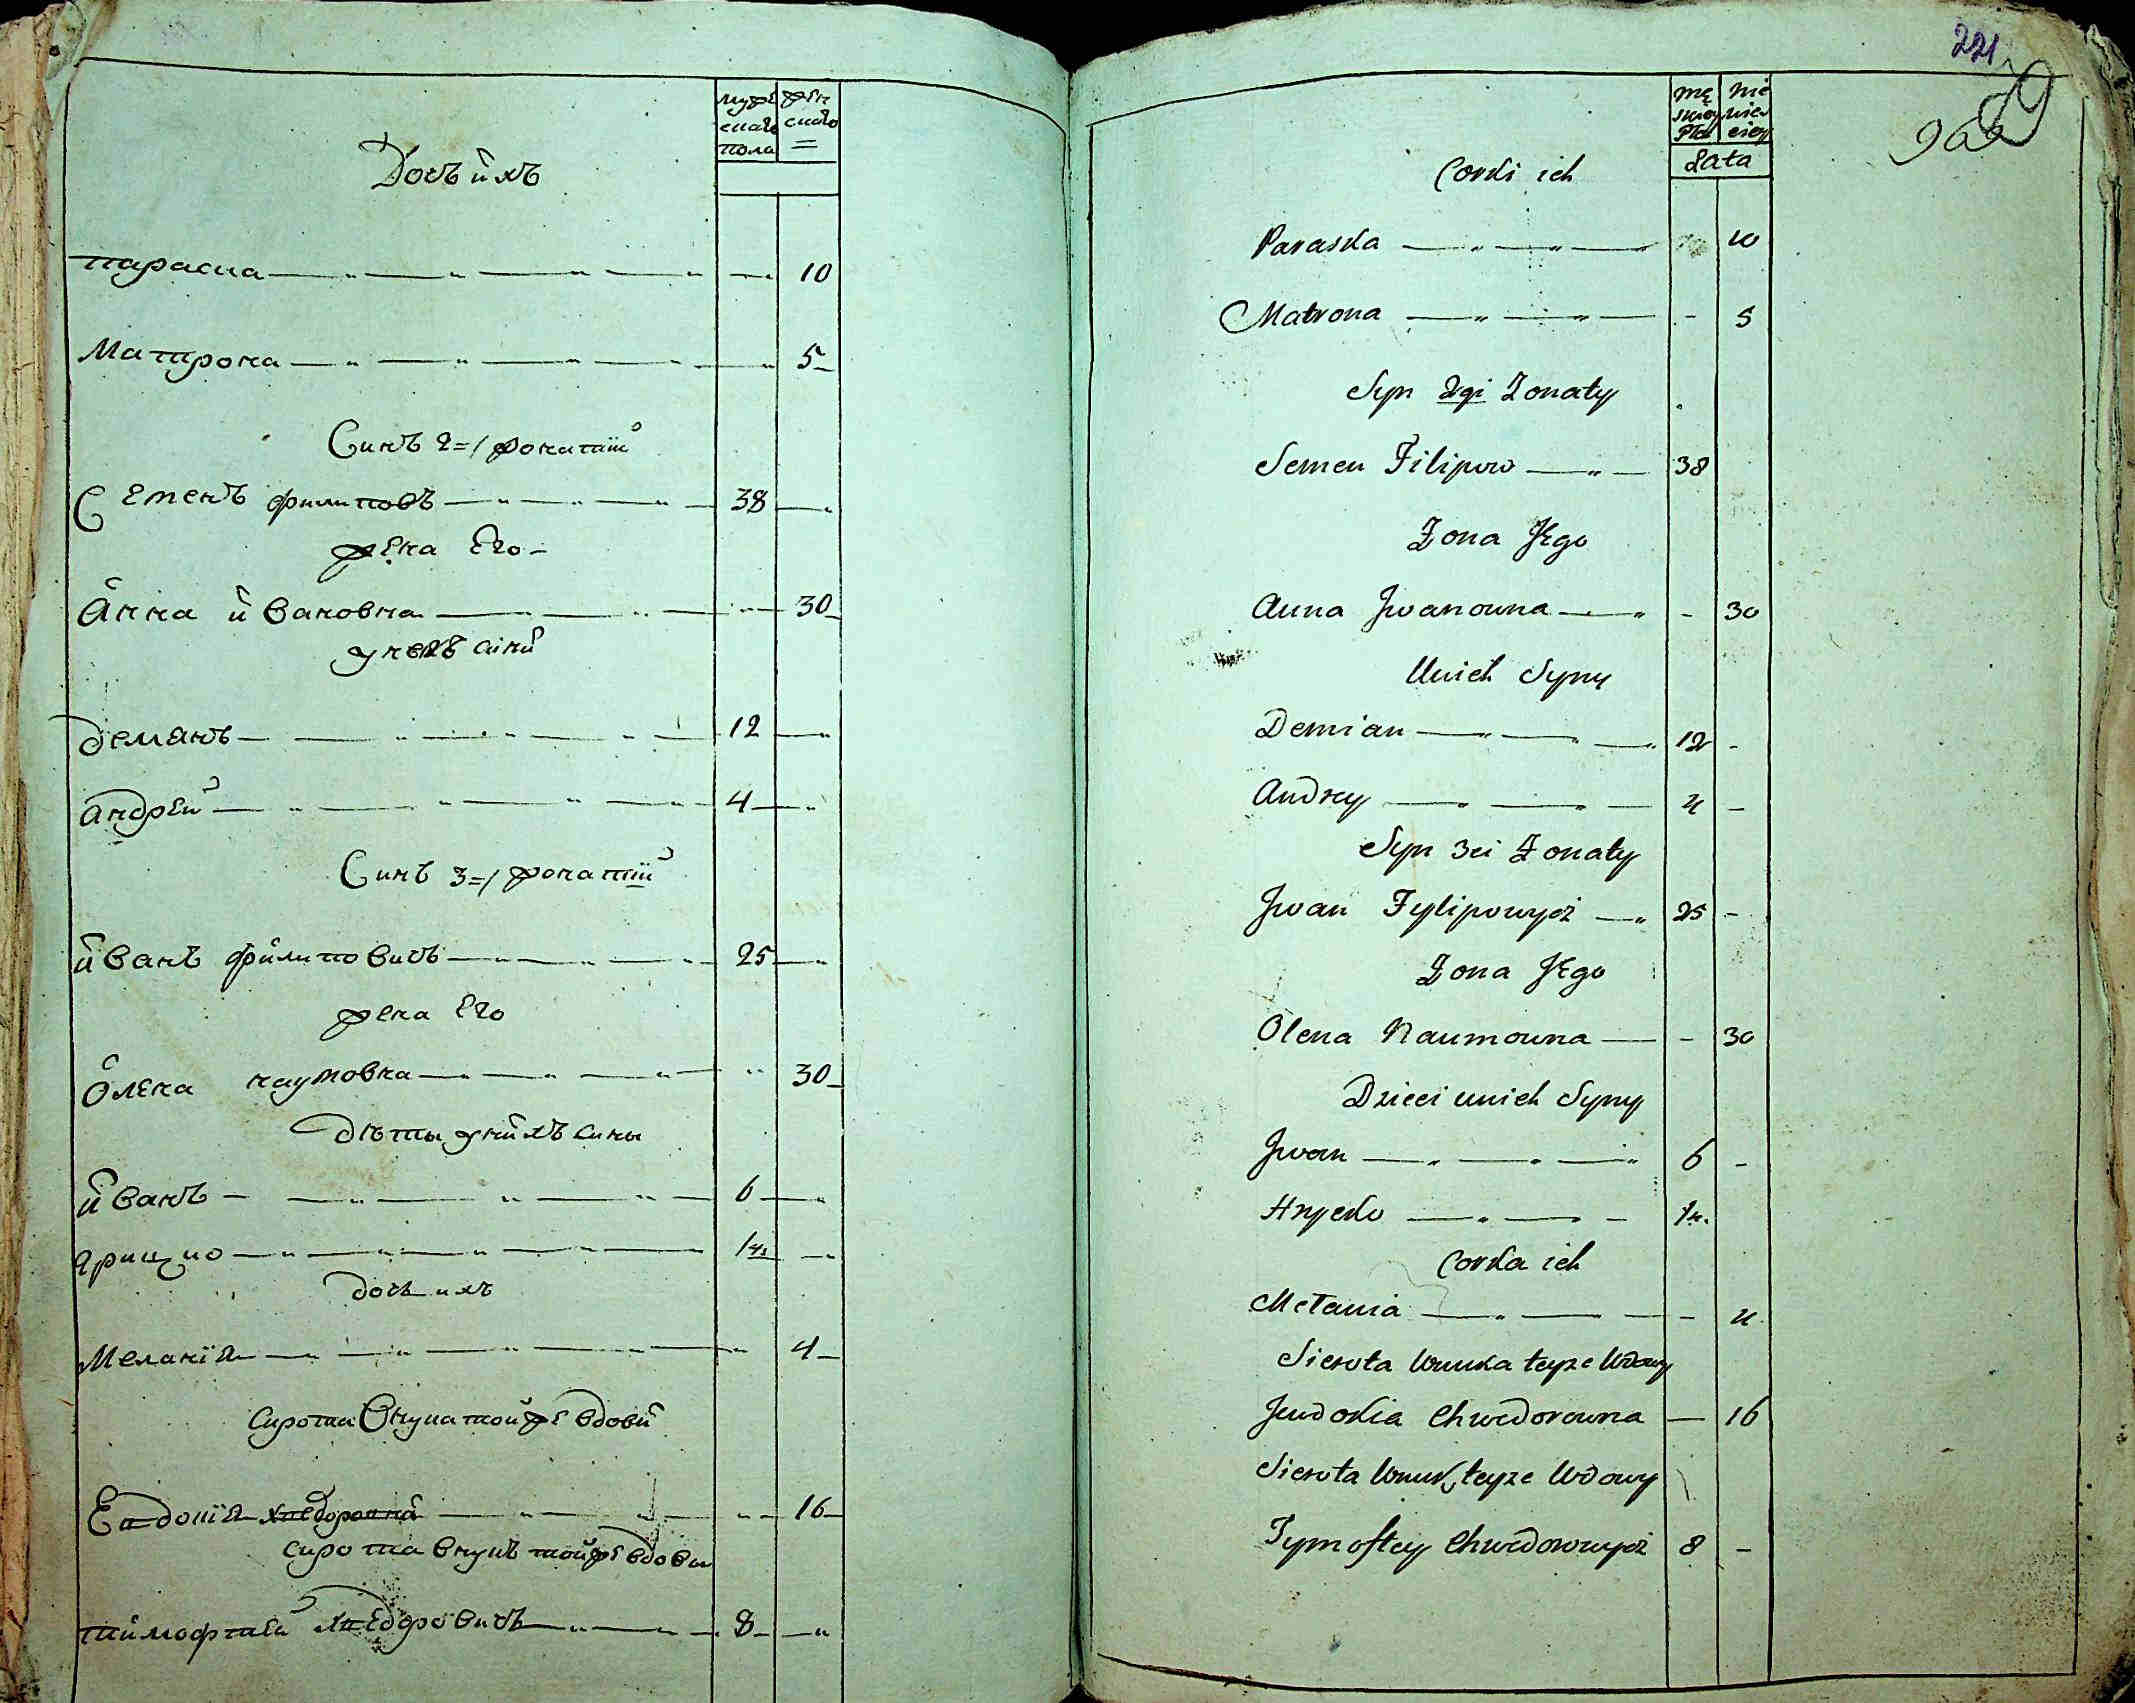 мужескаго пола женскаго =
Дочъ ихъ
параска — 10
Матрона — 5
Синъ 2=/ жонатий
Семенъ филиповъ — 38 —
жена Его
Анна ивановна — 30
унихъ сини
демянъ — 12 —
андрей — 4 —
Синъ 3=/ жонатий
иванъ филиповичъ — 25 —
жена Его
Олена наумовна — 30
дѣты унихъ сины
иванъ — 6 —
грицко — 1/4 —
дочь ихъ
Меланія — 4
сирота внука тойже вдови
Евдокія хведоровна — 16
сирота внукъ тойже вдови
тимофтей хведоровичъ — 8 —
221
99
męskiey Płci niewiesciey
Lata
Corki ich
Paraska — 10
Matrona — - 5
Syn 2gi Zonaty
Semen Filipow — 38
Zona Jego
Anna Jwanowna — - 30
Unich Syny
Demian — 12 -
Andrey — 4 -
Syn 3ci Zonaty
Jwan Fylipowycz — 25 -
Zona Jego
Olena Naumowna — - 30
Dzieci unich Syny
Jwan — 6 -
Hrycko — 1/4.
Corka ich
Melania — - 4
Sierota Wnuka teyże Wdowy
Jwdokia Chwedorowna — 16
Sierota Wnuk teyże Wdowy
Tymoftey Chwedorowycz 8 -